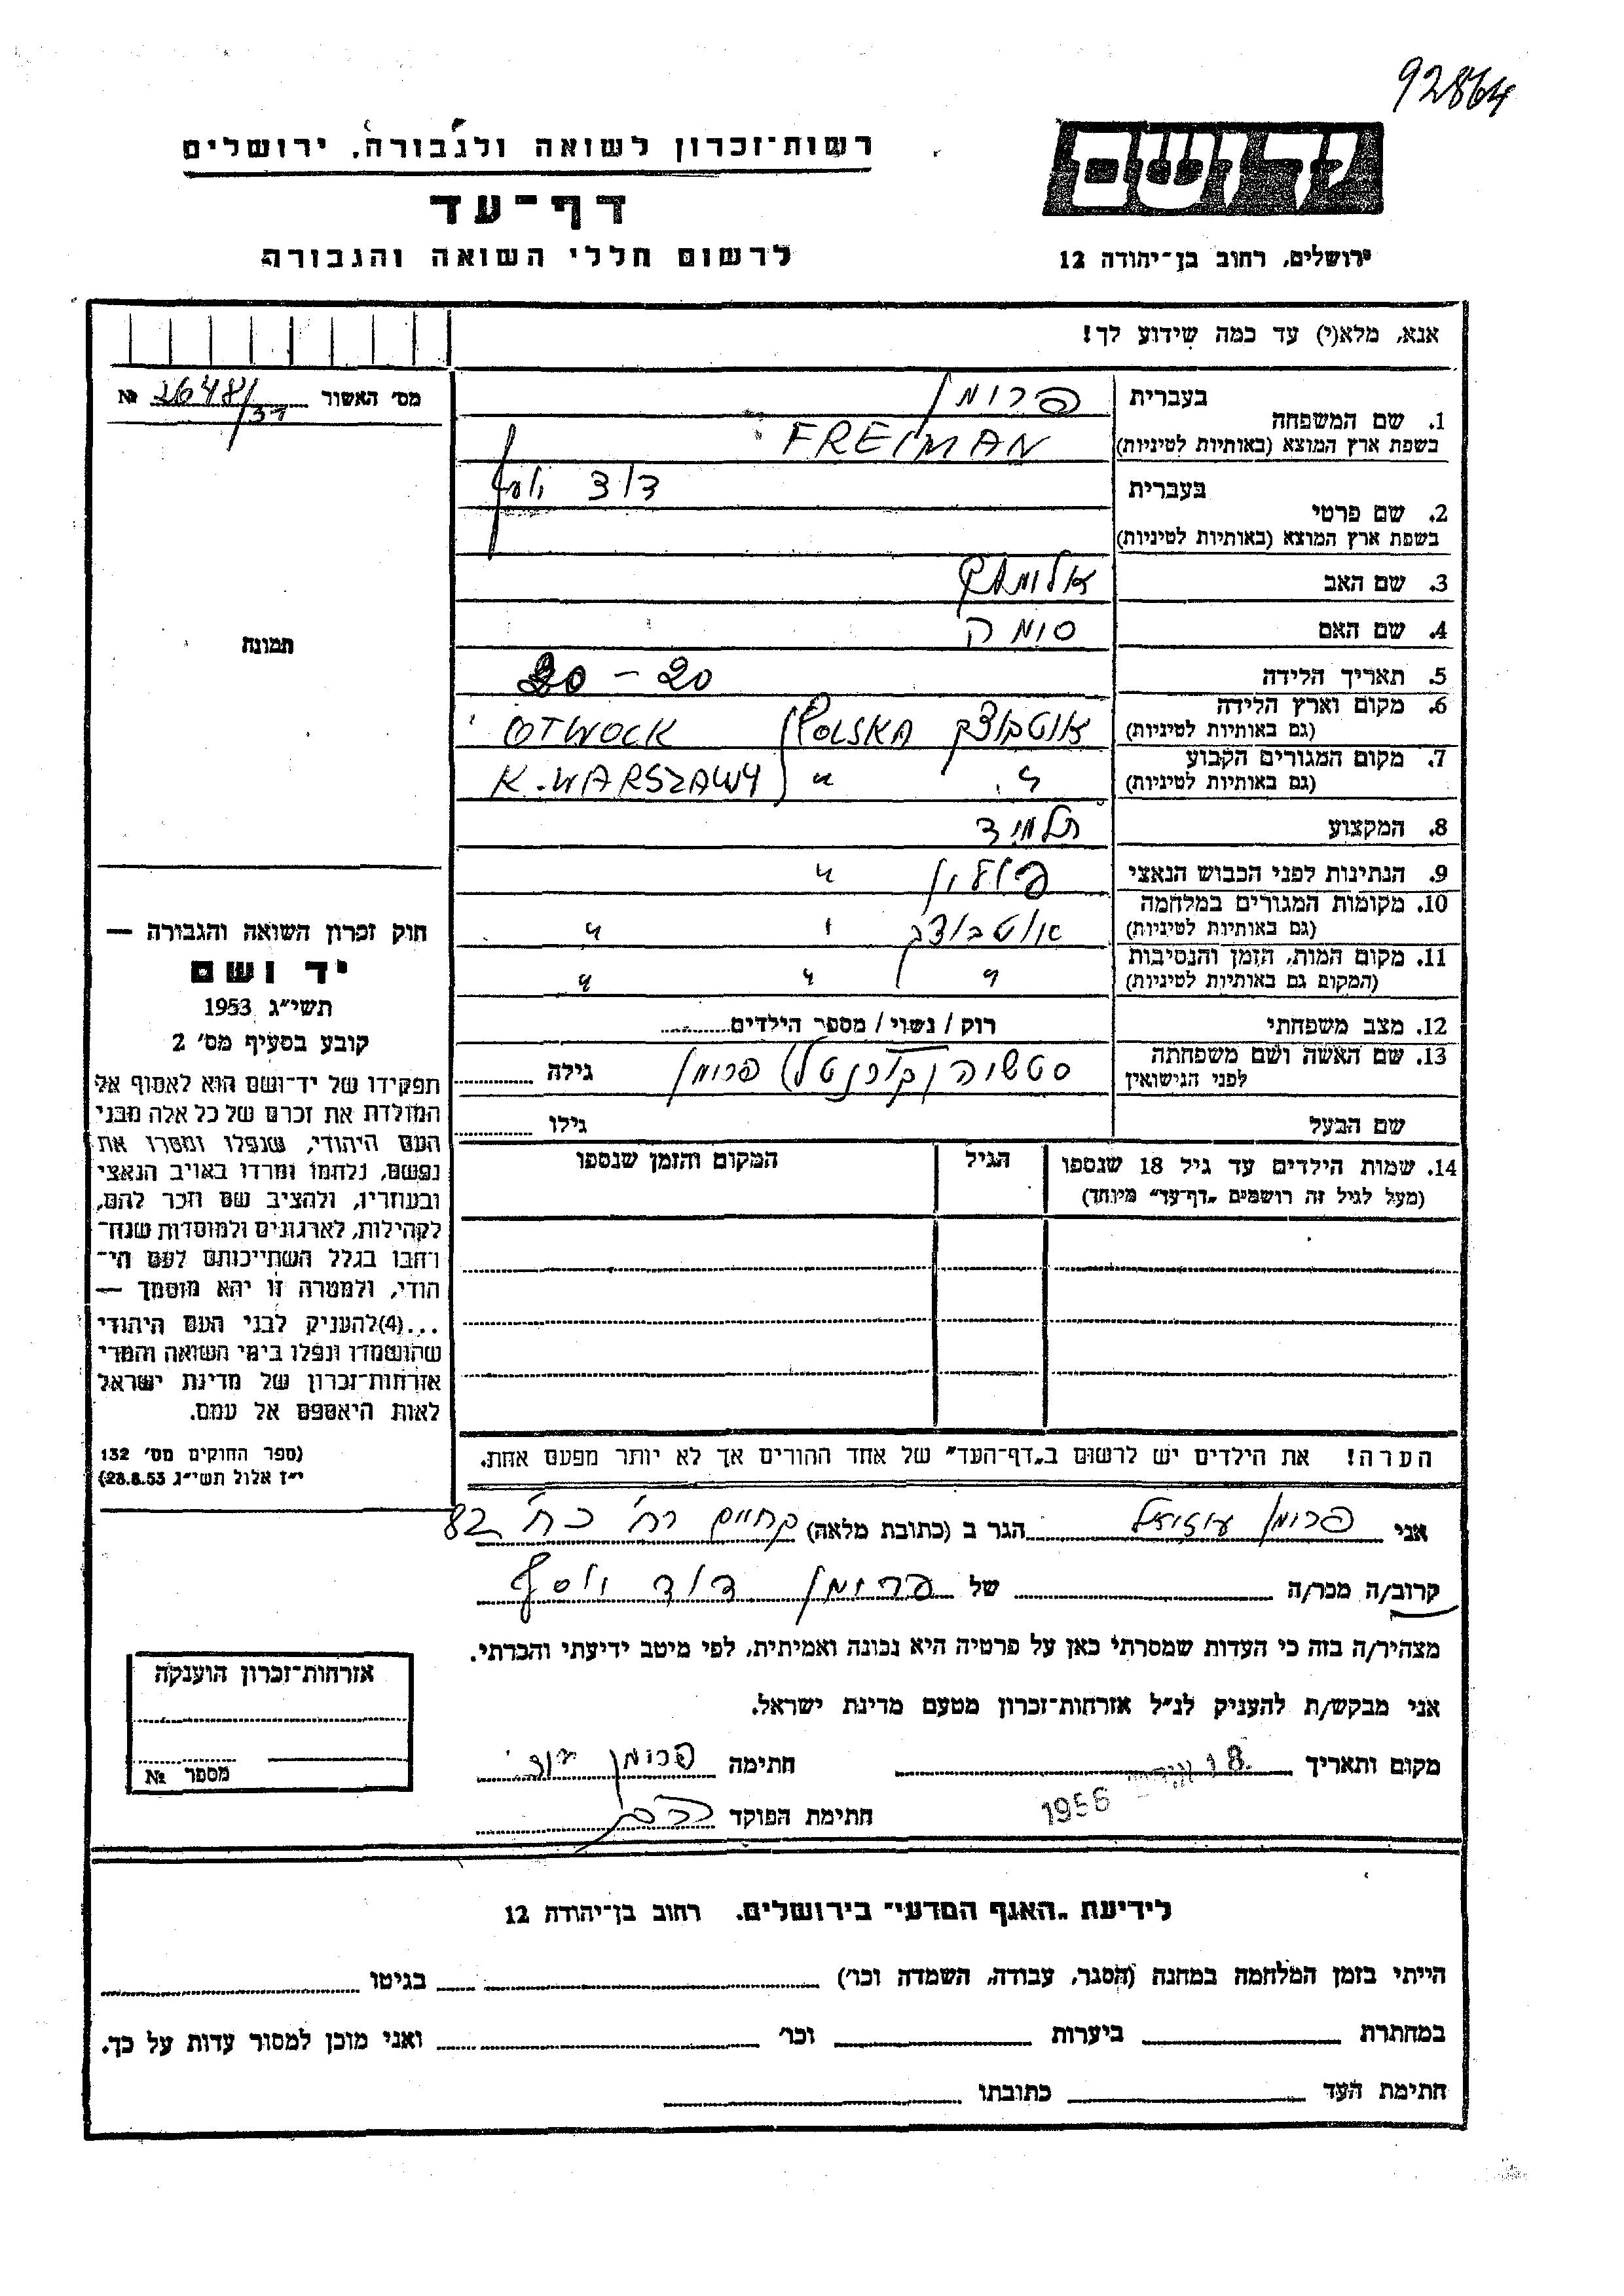 92864
רשות־זכרון לשואה ולגבורה, ירושלים
דף־עד
לרשום חללי השואה והגבורה
יד ושם
ירושלים, רחוב בן־יהודה 12
אנא, מלא(י) עד כמה שידוע לך!
מס׳ האשור № 2648/37
תמונה
1. שם המשפחה בעברית פרומן
בשפת ארץ המוצא (באותיות לטיניות) FREIMAN
2. שם פרטי בעברית דוד יוסף
בשפת ארץ המוצא (באותיות לטיניות)
3. שם האב
4. שם האם
5. תאריך הלידה 20 –
6. מקום וארץ הלידה (גם באותיות לטיניות) אוטבוצק POLSKA OTWOCK
7. מקום המגורים הקבוע (גם באותיות לטיניות) " " K. WARSZAWY
8. המקצוע תלמיד
9. הנתינות לפני הכבוש הנאצי פולין "
10. מקומות המגורים במלחמה (גם באותיות לטיניות) אוטבוצק " "
11. מקום המות, הזמן והנסיבות (המקום גם באותיות לטיניות) " " "
12. מצב משפחתי רוק / נשוי / מספר הילדים
13. שם האשה ושם משפחתה לפני הנישואין פרומן גילה
שם הבעל גילו
14. שמות הילדים עד גיל 18 שנספו
(מעל לגיל זה רושמים „דף־עד״ מיוחד)
הגיל
המקום והזמן שנספו
הערה! את הילדים יש לרשום ב„דף־העד״ של אחד ההורים אך לא יותר מפעם אחת.
חוק זכרון השואה והגבורה —
יד ושם
תשי״ג 1953
קובע בסעיף מס׳ 2
תפקידו של יד־ושם הוא לאסוף אל
המולדת את זכרם של כל אלה מבני
העם היהודי, שנפלו ומסרו את
נפשם, נלחמו ומרדו באויב הנאצי
ובעוזריו, ולהציב שם וזכר להם,
לקהילות, לארגונים ולמוסדות שנח־
רבו בגלל השתייכותם לעם הי־
הודי, ולמטרה זו יהא מוסמך —
...(4)להעניק לבני העם היהודי
שהושמדו ונפלו בימי השואה והמרי
אזרחות־זכרון של מדינת ישראל
לאות היאספם אל עמם.
(ספר החוקים מס׳ 132
י״ז אלול תשי״ג 28.8.53)
אני פרומן עוזיאל הגר ב (כתובת מלאה) רח׳ 82
קרוב/ה מכר/ה של פרומן דוד יוסף
מצהיר/ה בזה כי העדות שמסרתי כאן על פרטיה היא נכונה ואמיתית, לפי מיטב ידיעתי והכרתי.
אני מבקש/ת להעניק לנ״ל אזרחות־זכרון מטעם מדינת ישראל.
מקום ותאריך 18 1956 חתימה פרומן
חתימת הפוקד
אזרחות־זכרון הוענקה
מספר №
לידיעת „האגף המדעי״ בירושלים, רחוב בן־יהודה 12
הייתי בזמן המלחמה במחנה (הסגר, עבודה, השמדה וכו׳) בגיטו
במחתרת ביערות וכו׳ ואני מוכן למסור עדות על כך.
חתימת העד כתובתו